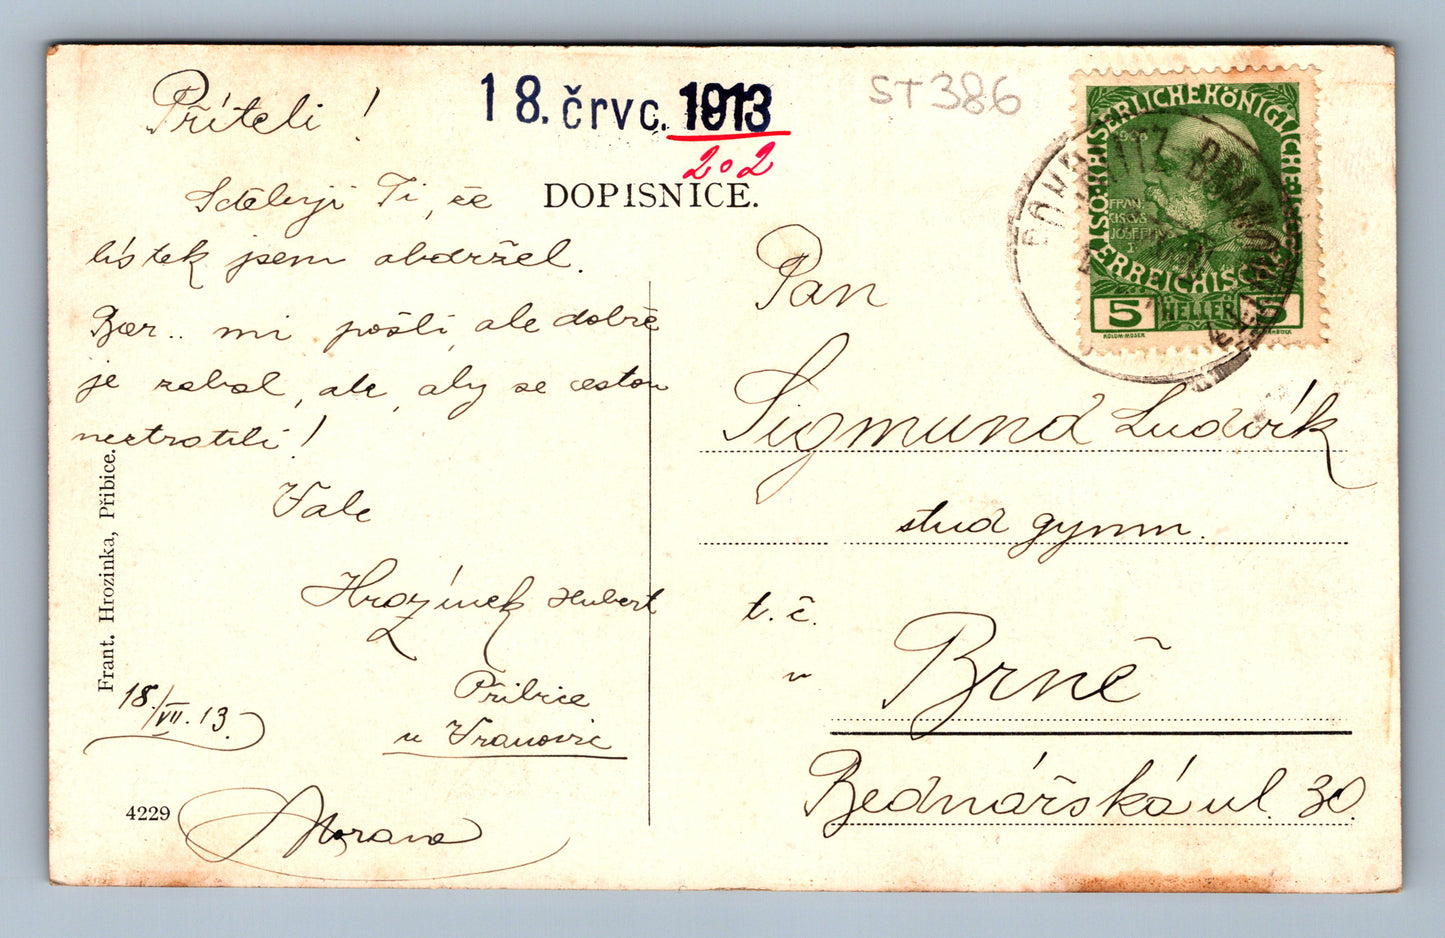 18. črvc. 1913
202
ST386
DOPISNICE.
Příteli!
Sděluji Ti, že
lístek jsem obdržel.
mi pošli, ale dobře
je zabal, ale, aby se cestou
neztratili!
Vale
Hrozínek Hubert
Přibice
u Vranovic
18./VII. 13.
Morava
4229
Frant. Hrozinka, Přibice.
Pan
Sigmund Ludvík
stud gymn.
t. č.
v Brně
Bednářská ul. 30.
KAISERLICHE KÖNIGLICHE
ÖSTERREICHISCHE
1908
FRAN
CISCVS
JOSEPHVS
I
5 HELLER 5
KOLOM·MOSER